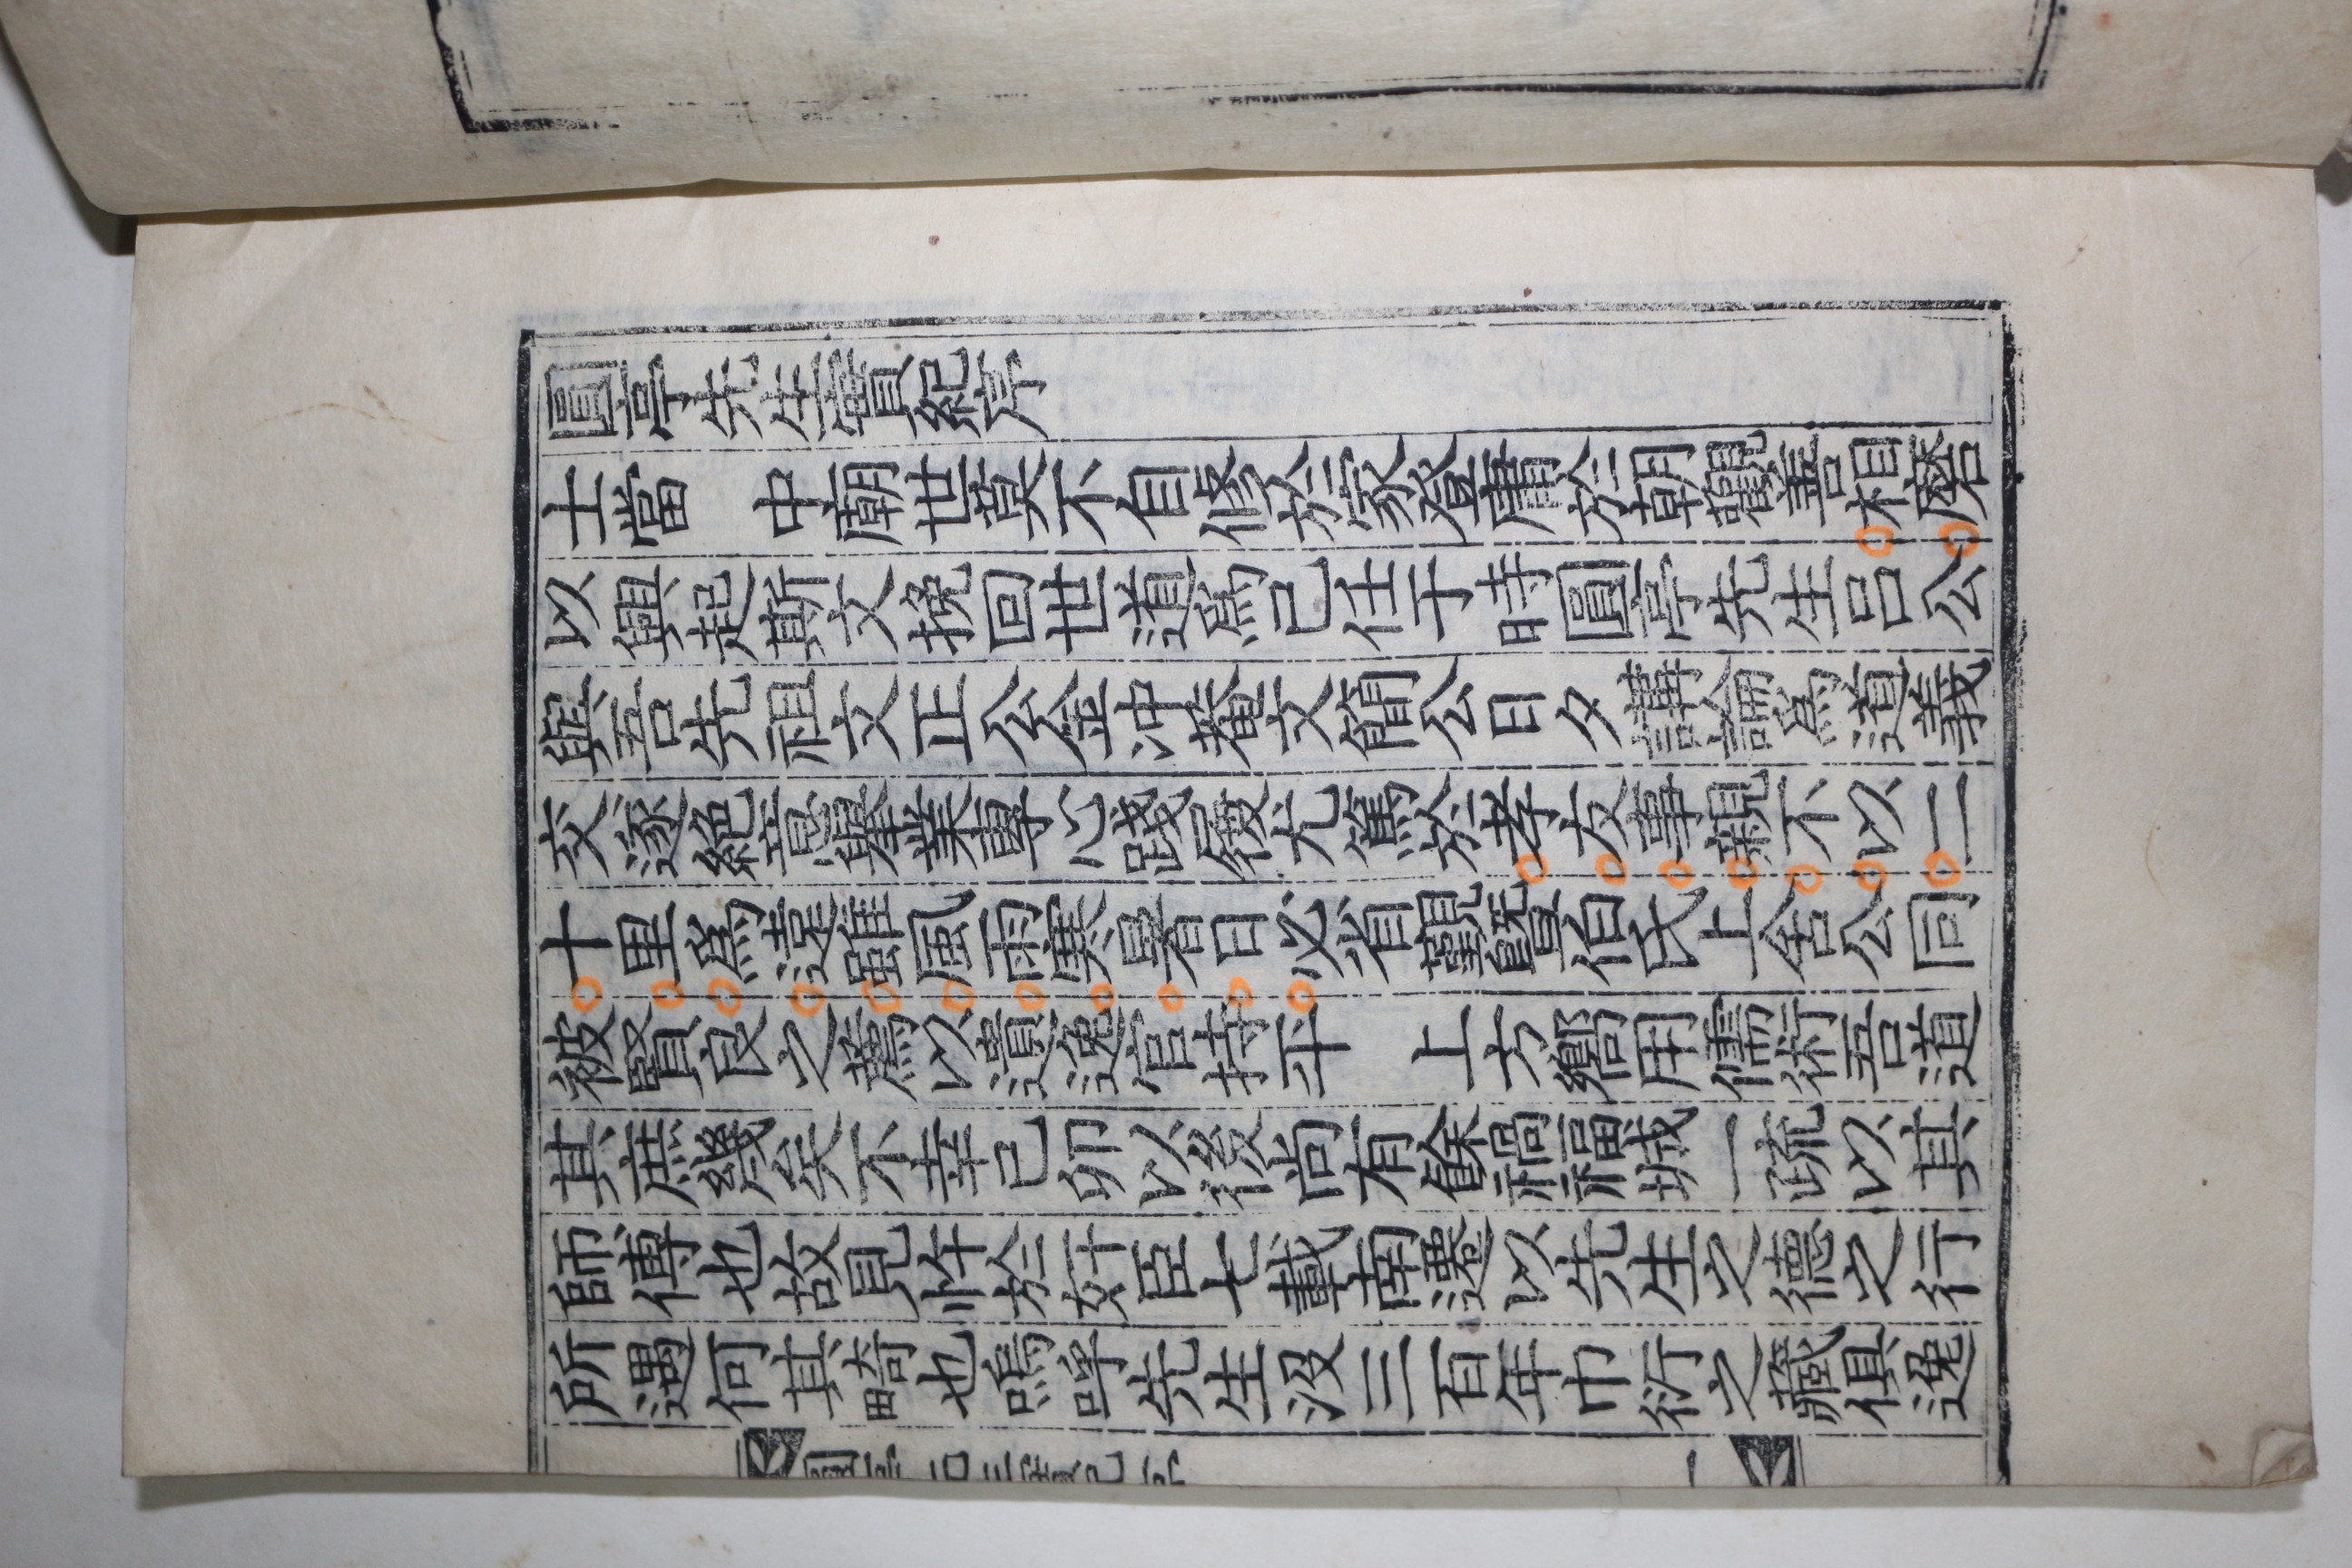 圓亭先生實紀序
士當　中廟世莫不自修於家登庸於朝觀善相磨
以興起斯文挽回世道爲己任于時圓亭先生呂公
與吾先祖文正公金冲菴文簡公日夕講論爲道義
交遂絕意擧業專心踐履尤篤於孝友事親不以二
十里爲遠雖風雨寒暑日必省觀曁伯氏上舍公同
被賢良之薦以遺逸官持平　上方嚮用儒術吾道
其庶幾矣不幸己卯以後尚有餘禍福城一疏以其
師傅也故見忤於奸臣七載南遷以先生之德之行
所遇何其畸也嗚呼先生沒三百年巾衍之藏俱逸